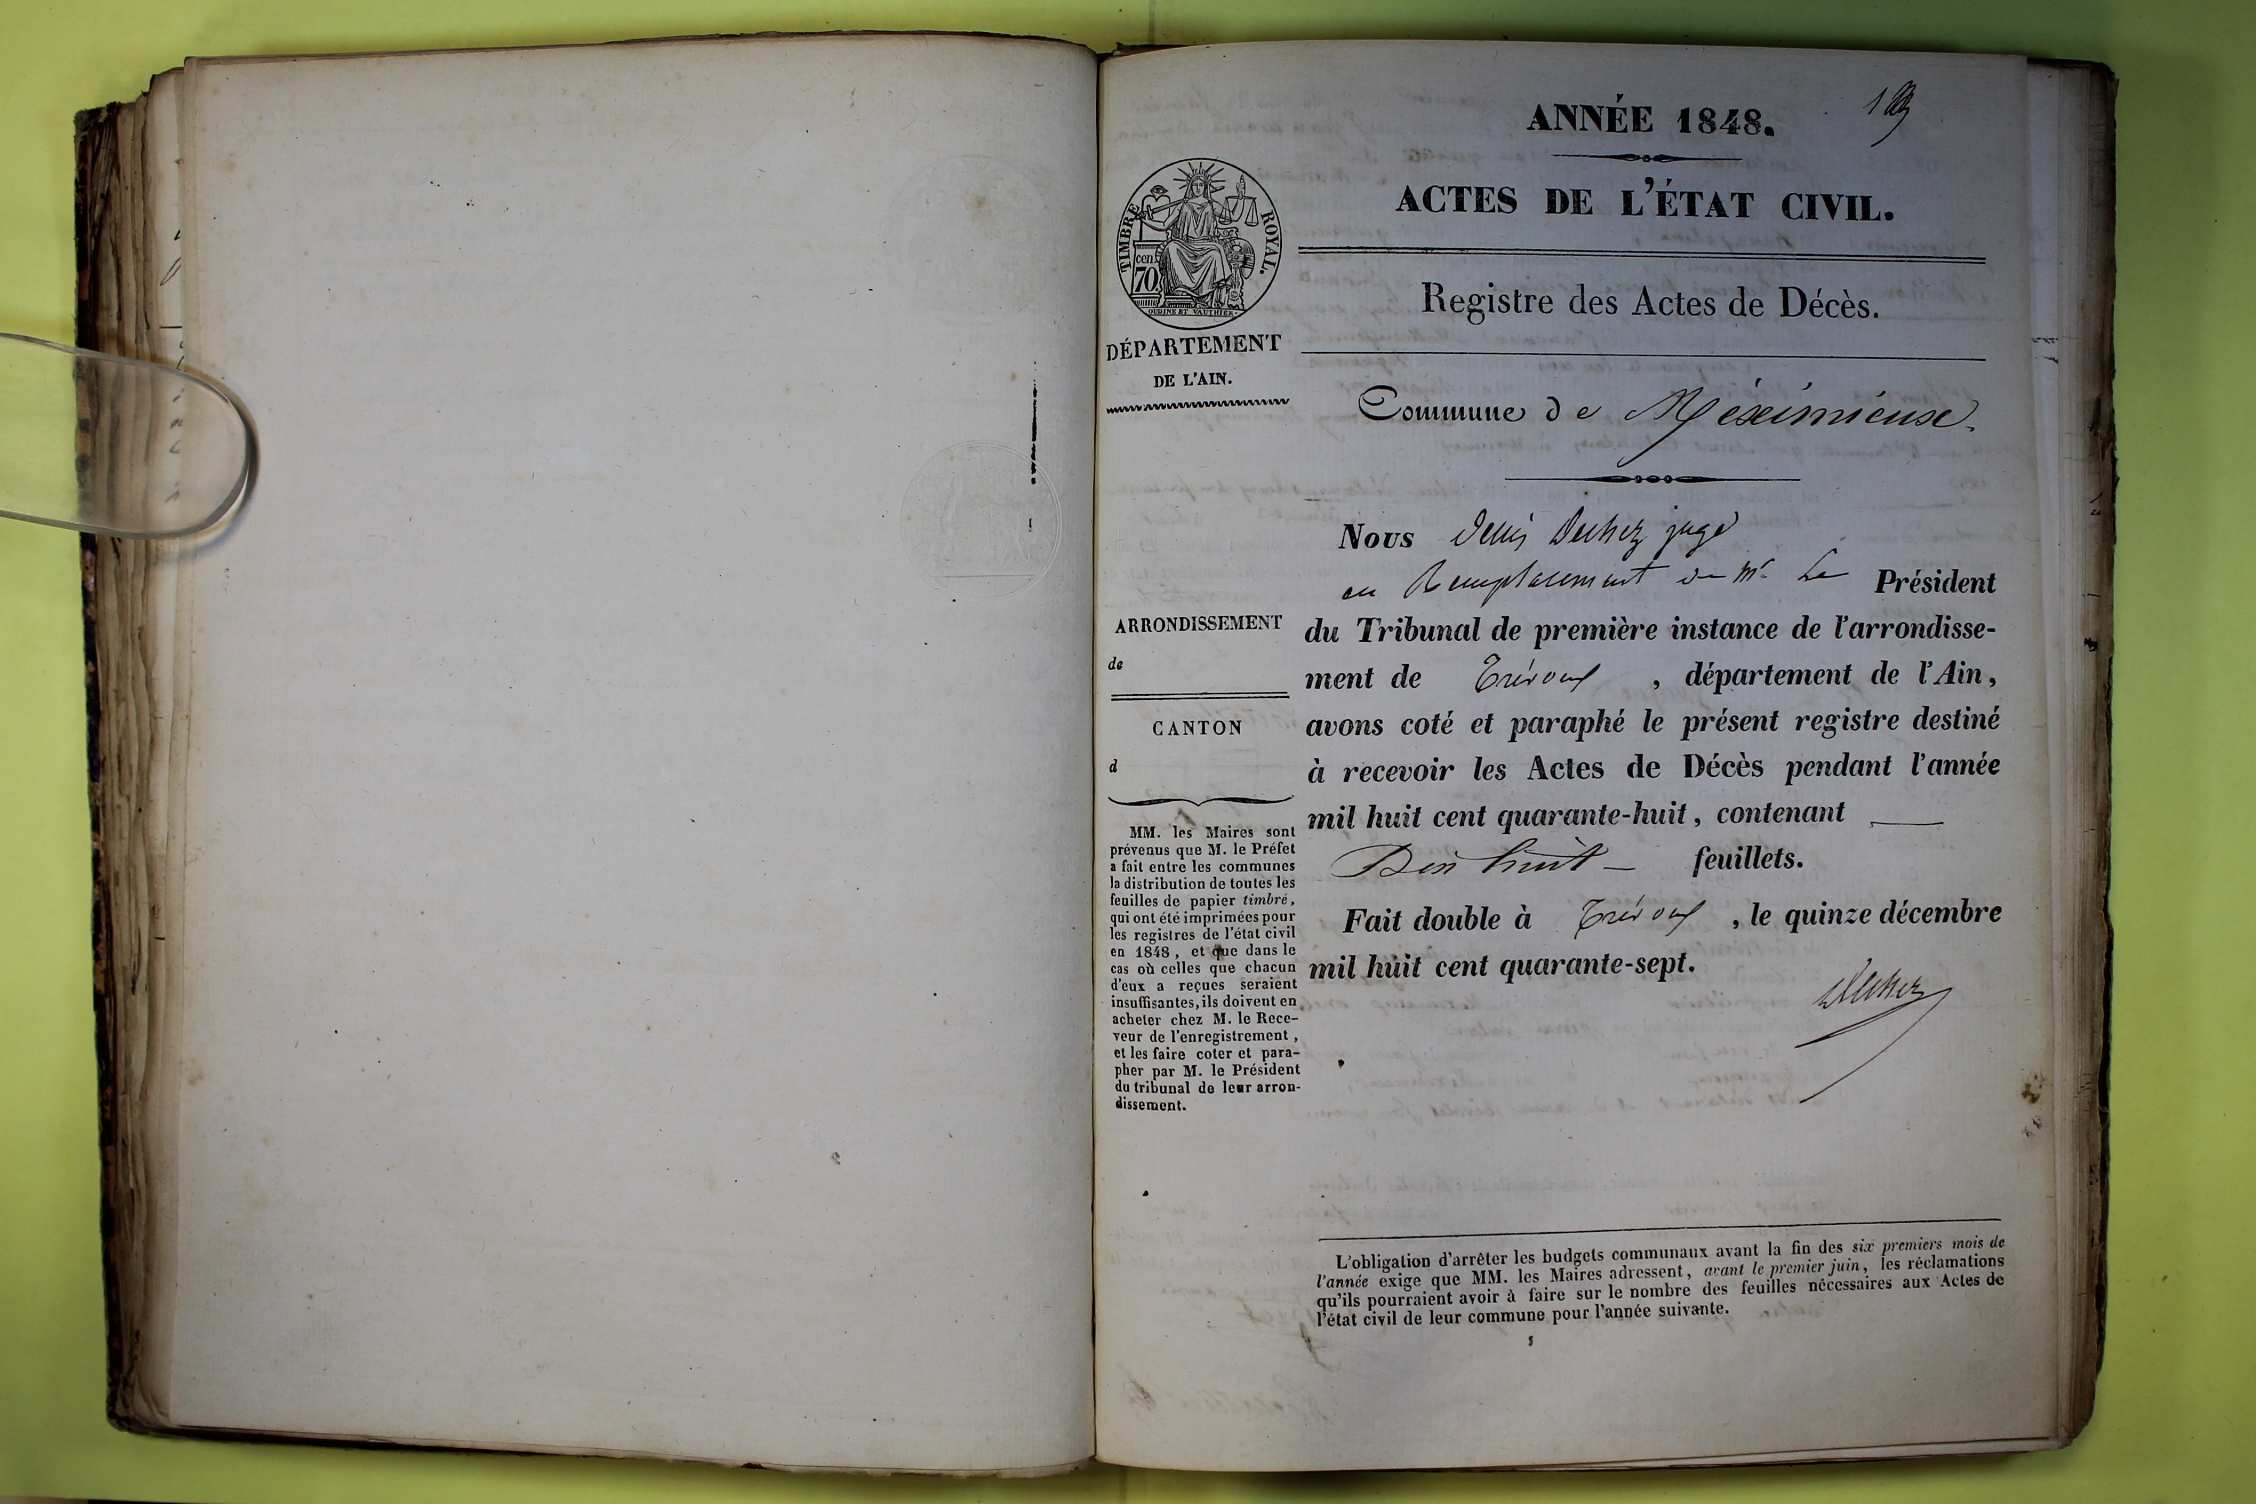 ANNÉE 1848.
ACTES DE L'ÉTAT CIVIL.
Registre des Actes de Décès.
TIMBRE ROYAL.
cen.
70
OUDINE ET VAUTHIER
DÉPARTEMENT
DE L'AIN.
ARRONDISSEMENT
de
CANTON
d
MM. les Maires sont
prévenus que M. le Préfet
a fait entre les communes
la distribution de toutes les
feuilles de papier timbré,
qui ont été imprimées pour
les registres de l'état civil
en 1848, et que dans le
cas où celles que chacun
d'eux a reçues seraient
insuffisantes, ils doivent en
acheter chez M. le Rece-
veur de l'enregistrement,
et les faire coter et para-
pher par M. le Président
du tribunal de leur arron-
dissement.
Commune de Méximieux.
Nous Denis Duchez juge
en Remplacement de Mr. Le Président
du Tribunal de première instance de l'arrondisse-
ment de Trévoux, département de l'Ain,
avons coté et paraphé le présent registre destiné
à recevoir les Actes de Décès pendant l'année
mil huit cent quarante-huit, contenant
Dix huit feuillets.
Fait double à Trévoux, le quinze décembre
mil huit cent quarante-sept.
L'obligation d'arrêter les budgets communaux avant la fin des six premiers mois de
l'année exige que MM. les Maires adressent, avant le premier juin, les réclamations
qu'ils pourraient avoir à faire sur le nombre des feuilles nécessaires aux Actes de
l'état civil de leur commune pour l'année suivante.